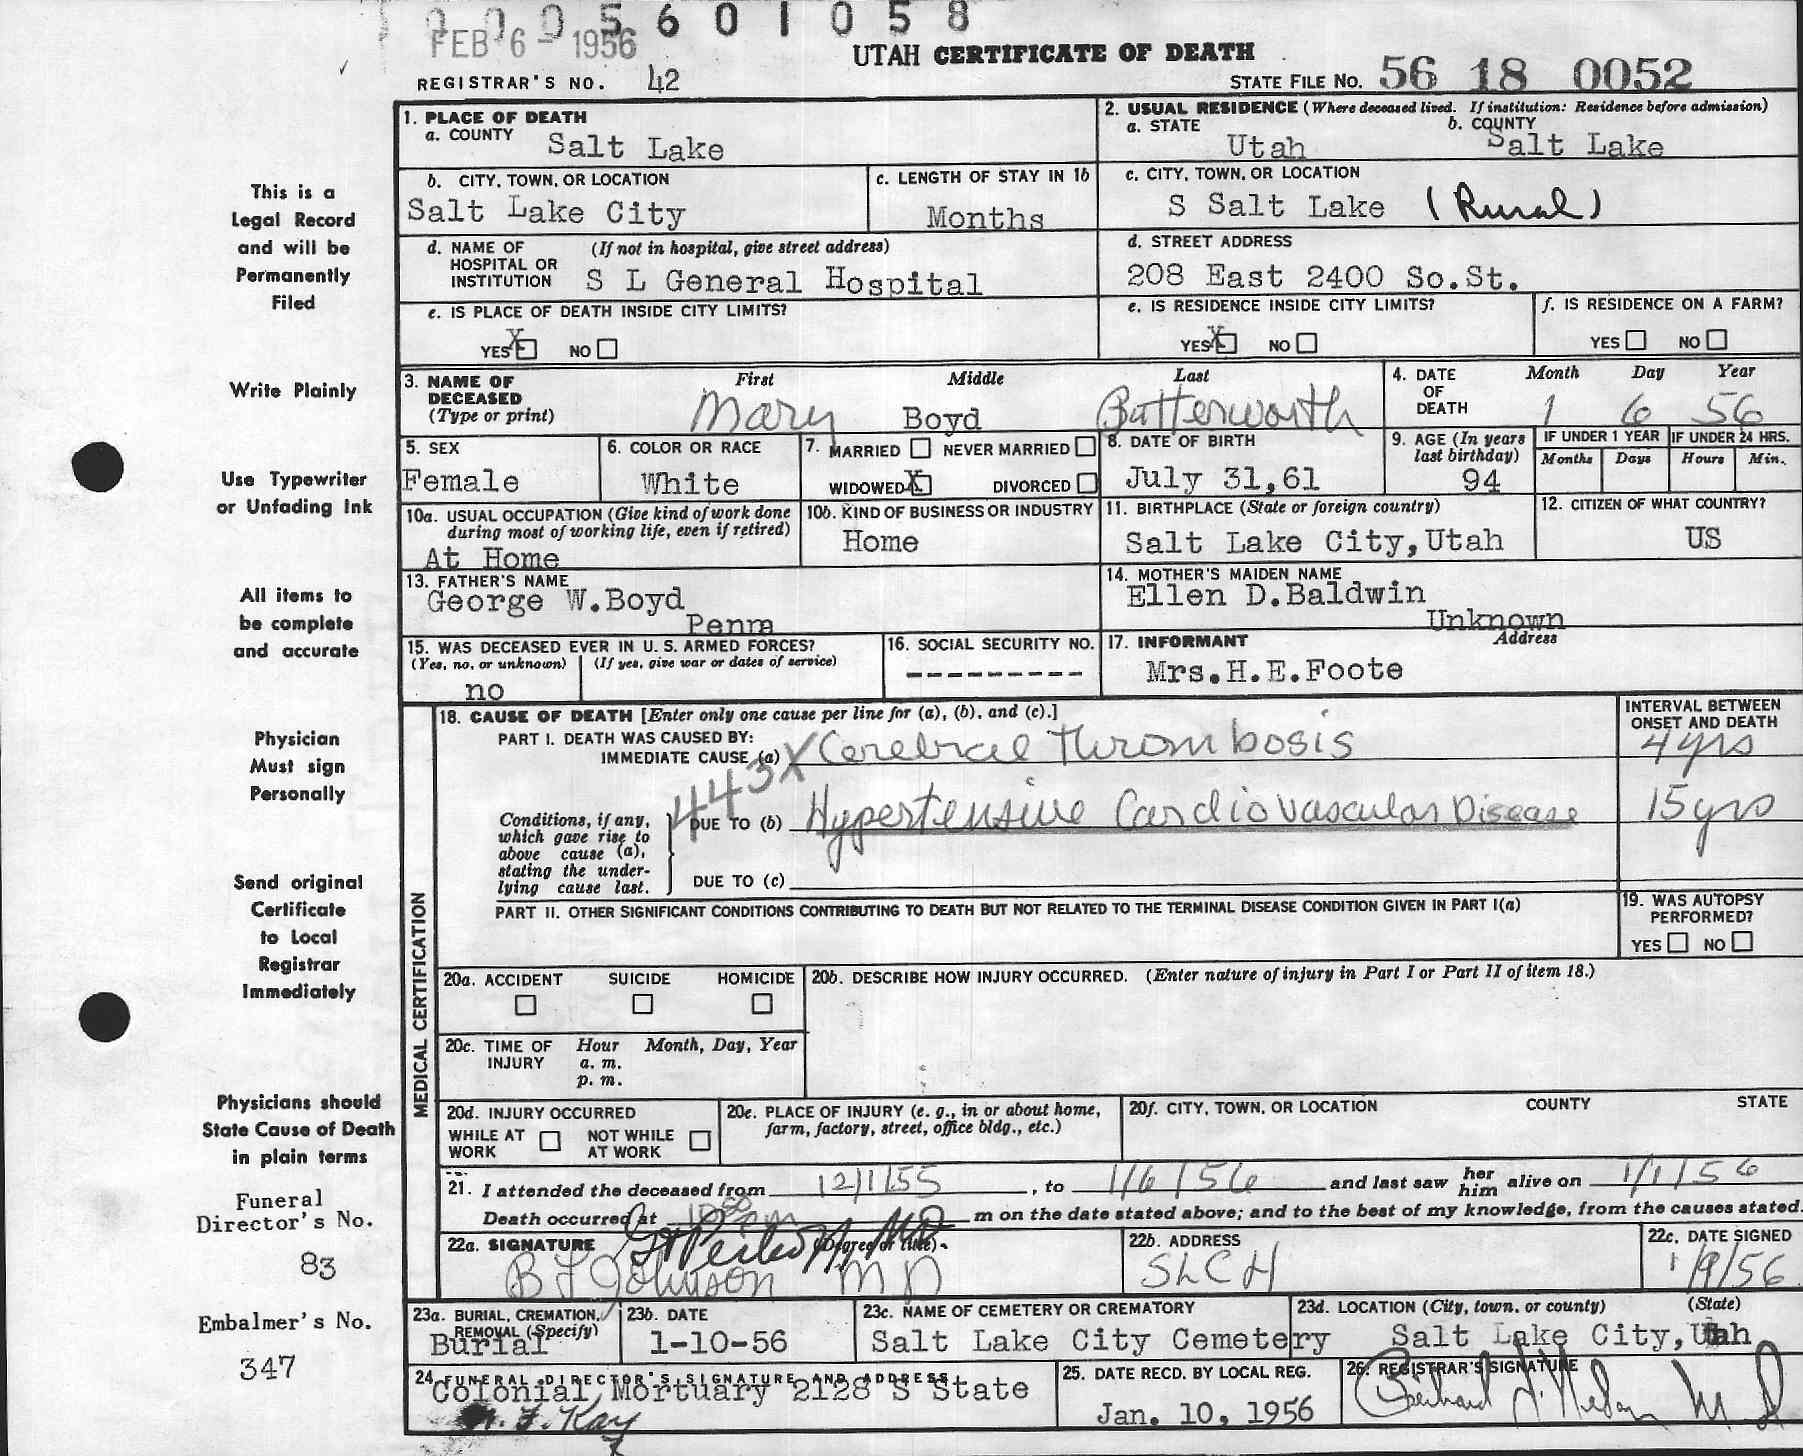 0 0 0 5 6 0 1 0 5 8
FEB 6 - 1956
UTAH CERTIFICATE OF DEATH
REGISTRAR'S NO. 42
STATE FILE NO. 56 18 0052
This is a
Legal Record
and will be
Permanently
Filed
Write Plainly
Use Typewriter
or Unfading Ink
All items to
be complete
and accurate
Physician
Must sign
Personally
Send original
Certificate
to Local
Registrar
Immediately
Physicians should
State Cause of Death
in plain terms
Funeral
Director's No.
83
Embalmer's No.
347
1. PLACE OF DEATH
a. COUNTY Salt Lake
2. USUAL RESIDENCE (Where deceased lived. If institution: Residence before admission)
a. STATE Utah b. COUNTY Salt Lake
b. CITY, TOWN, OR LOCATION
Salt Lake City
c. LENGTH OF STAY IN 1b
Months
c. CITY, TOWN, OR LOCATION
S Salt Lake (Rural)
d. NAME OF HOSPITAL OR INSTITUTION (If not in hospital, give street address)
S L General Hospital
d. STREET ADDRESS
208 East 2400 So.St.
e. IS PLACE OF DEATH INSIDE CITY LIMITS?
YES X NO
e. IS RESIDENCE INSIDE CITY LIMITS?
YES X NO
f. IS RESIDENCE ON A FARM?
YES NO
3. NAME OF DECEASED (Type or print)
First Middle Last
Mary Boyd Butterworth
4. DATE OF DEATH
Month Day Year
1 6 56
5. SEX
Female
6. COLOR OR RACE
White
7. MARRIED NEVER MARRIED
WIDOWED X DIVORCED
8. DATE OF BIRTH
July 31,61
9. AGE (In years last birthday)
94
IF UNDER 1 YEAR IF UNDER 24 HRS.
Months Days Hours Min.
10a. USUAL OCCUPATION (Give kind of work done during most of working life, even if retired)
At Home
10b. KIND OF BUSINESS OR INDUSTRY
Home
11. BIRTHPLACE (State or foreign country)
Salt Lake City,Utah
12. CITIZEN OF WHAT COUNTRY?
US
13. FATHER'S NAME
George W.Boyd
Penna
14. MOTHER'S MAIDEN NAME
Ellen D.Baldwin
Unknown
15. WAS DECEASED EVER IN U. S. ARMED FORCES?
(Yes, no, or unknown) (If yes, give war or dates of service)
no
16. SOCIAL SECURITY NO.
---------
17. INFORMANT Address
Mrs.H.E.Foote
MEDICAL CERTIFICATION
18. CAUSE OF DEATH [Enter only one cause per line for (a), (b), and (c).]
INTERVAL BETWEEN ONSET AND DEATH
PART I. DEATH WAS CAUSED BY:
IMMEDIATE CAUSE (a) Cerebral Thrombosis 4 yrs
443X
Conditions, if any, which gave rise to above cause (a), stating the underlying cause last.
DUE TO (b) Hypertensive Cardiovascular Disease 15 yrs
DUE TO (c)
PART II. OTHER SIGNIFICANT CONDITIONS CONTRIBUTING TO DEATH BUT NOT RELATED TO THE TERMINAL DISEASE CONDITION GIVEN IN PART I(a)
19. WAS AUTOPSY PERFORMED?
YES NO
20a. ACCIDENT SUICIDE HOMICIDE
20b. DESCRIBE HOW INJURY OCCURRED. (Enter nature of injury in Part I or Part II of item 18.)
20c. TIME OF INJURY Hour Month, Day, Year
a. m.
p. m.
20d. INJURY OCCURRED
WHILE AT WORK NOT WHILE AT WORK
20e. PLACE OF INJURY (e. g., in or about home, farm, factory, street, office bldg., etc.)
20f. CITY, TOWN, OR LOCATION COUNTY STATE
21. I attended the deceased from 12/1/55, to 1/6/56 and last saw her him alive on 1/1/56
Death occurred at m on the date stated above; and to the best of my knowledge, from the causes stated.
22a. SIGNATURE (Degree or title)
B F Johnson MD
22b. ADDRESS
SLCH
22c. DATE SIGNED
1/9/56
23a. BURIAL, CREMATION, REMOVAL (Specify)
Burial
23b. DATE
1-10-56
23c. NAME OF CEMETERY OR CREMATORY
Salt Lake City Cemetery
23d. LOCATION (City, town, or county) (State)
Salt Lake City,Utah
24. FUNERAL DIRECTOR'S SIGNATURE AND ADDRESS
Colonial Mortuary 2128 S State
25. DATE RECD. BY LOCAL REG.
Jan. 10, 1956
26. REGISTRAR'S SIGNATURE